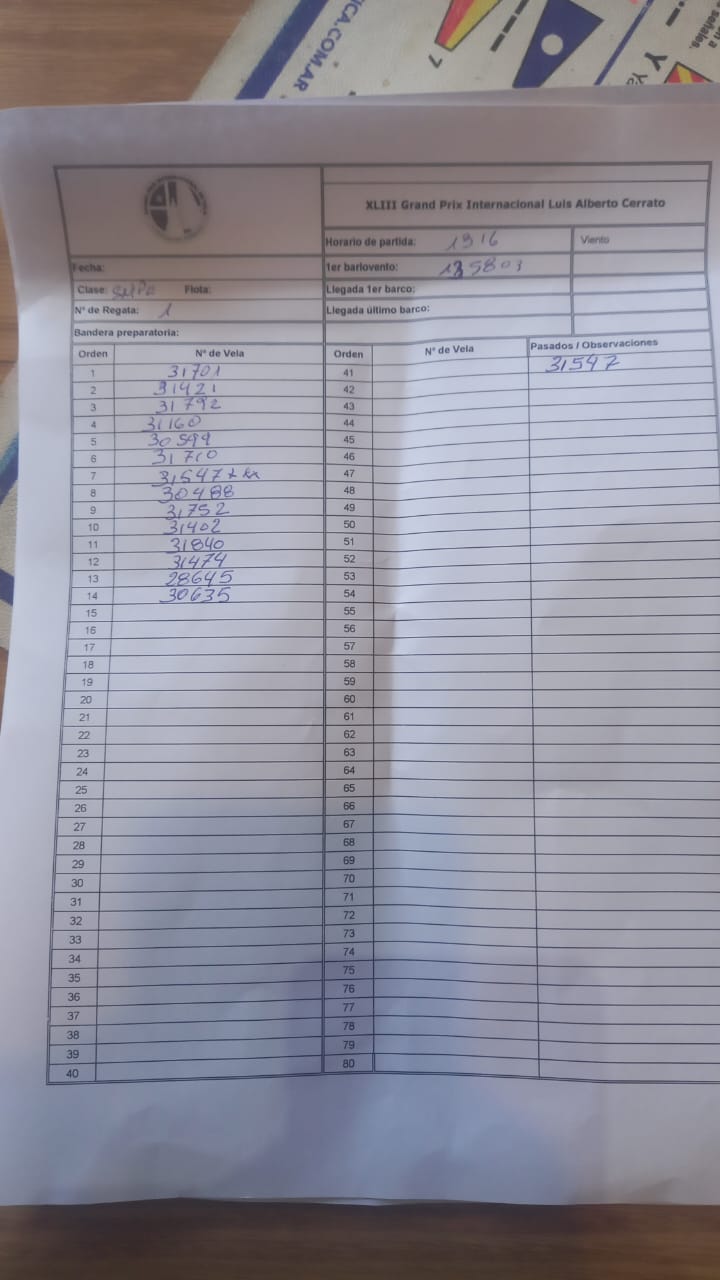 ICA.COM.AR
7
Y
XLIII Grand Prix Internacional Luis Alberto Cerrato
Horario de partida: 1316
Viento
Fecha:
1er barlovento:
Clase:
Flota:
Llegada 1er barco:
N° de Regata: 1
Llegada último barco:
Bandera preparatoria:
Orden N° de Vela Orden N° de Vela Pasados / Observaciones
1 31701 41 31547
2 31421 42
3 31792 43
4 31160 44
5 45
6 31710 46
7 31547 47
8 30488 48
9 31752 49
10 31402 50
11 31840 51
12 31474 52
13 28645 53
14 30635 54
15 55
16 56
17 57
18 58
19 59
20 60
21 61
22 62
23 63
24 64
25 65
26 66
27 67
28 68
29 69
30 70
31 71
32 72
33 73
34 74
35 75
36 76
37 77
38 78
39 79
40 80